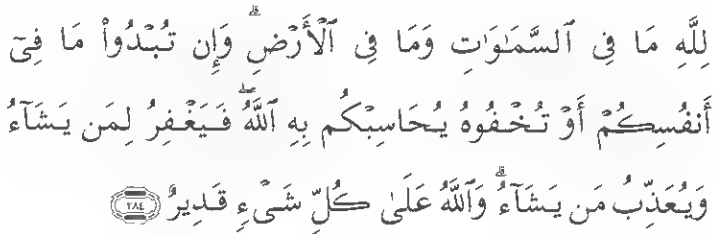 لِلَّهِ مَا فِى ٱلسَّمَـٰوَٰتِ وَمَا فِى ٱلْأَرْضِ ۗ وَإِن تُبْدُوا۟ مَا فِىٓ
أَنفُسِكُمْ أَوْ تُخْفُوهُ يُحَاسِبْكُم بِهِ ٱللَّهُ ۖ فَيَغْفِرُ لِمَن يَشَآءُ
وَيُعَذِّبُ مَن يَشَآءُ ۗ وَٱللَّهُ عَلَىٰ كُلِّ شَىْءٍ قَدِيرٌ ٢٨٤